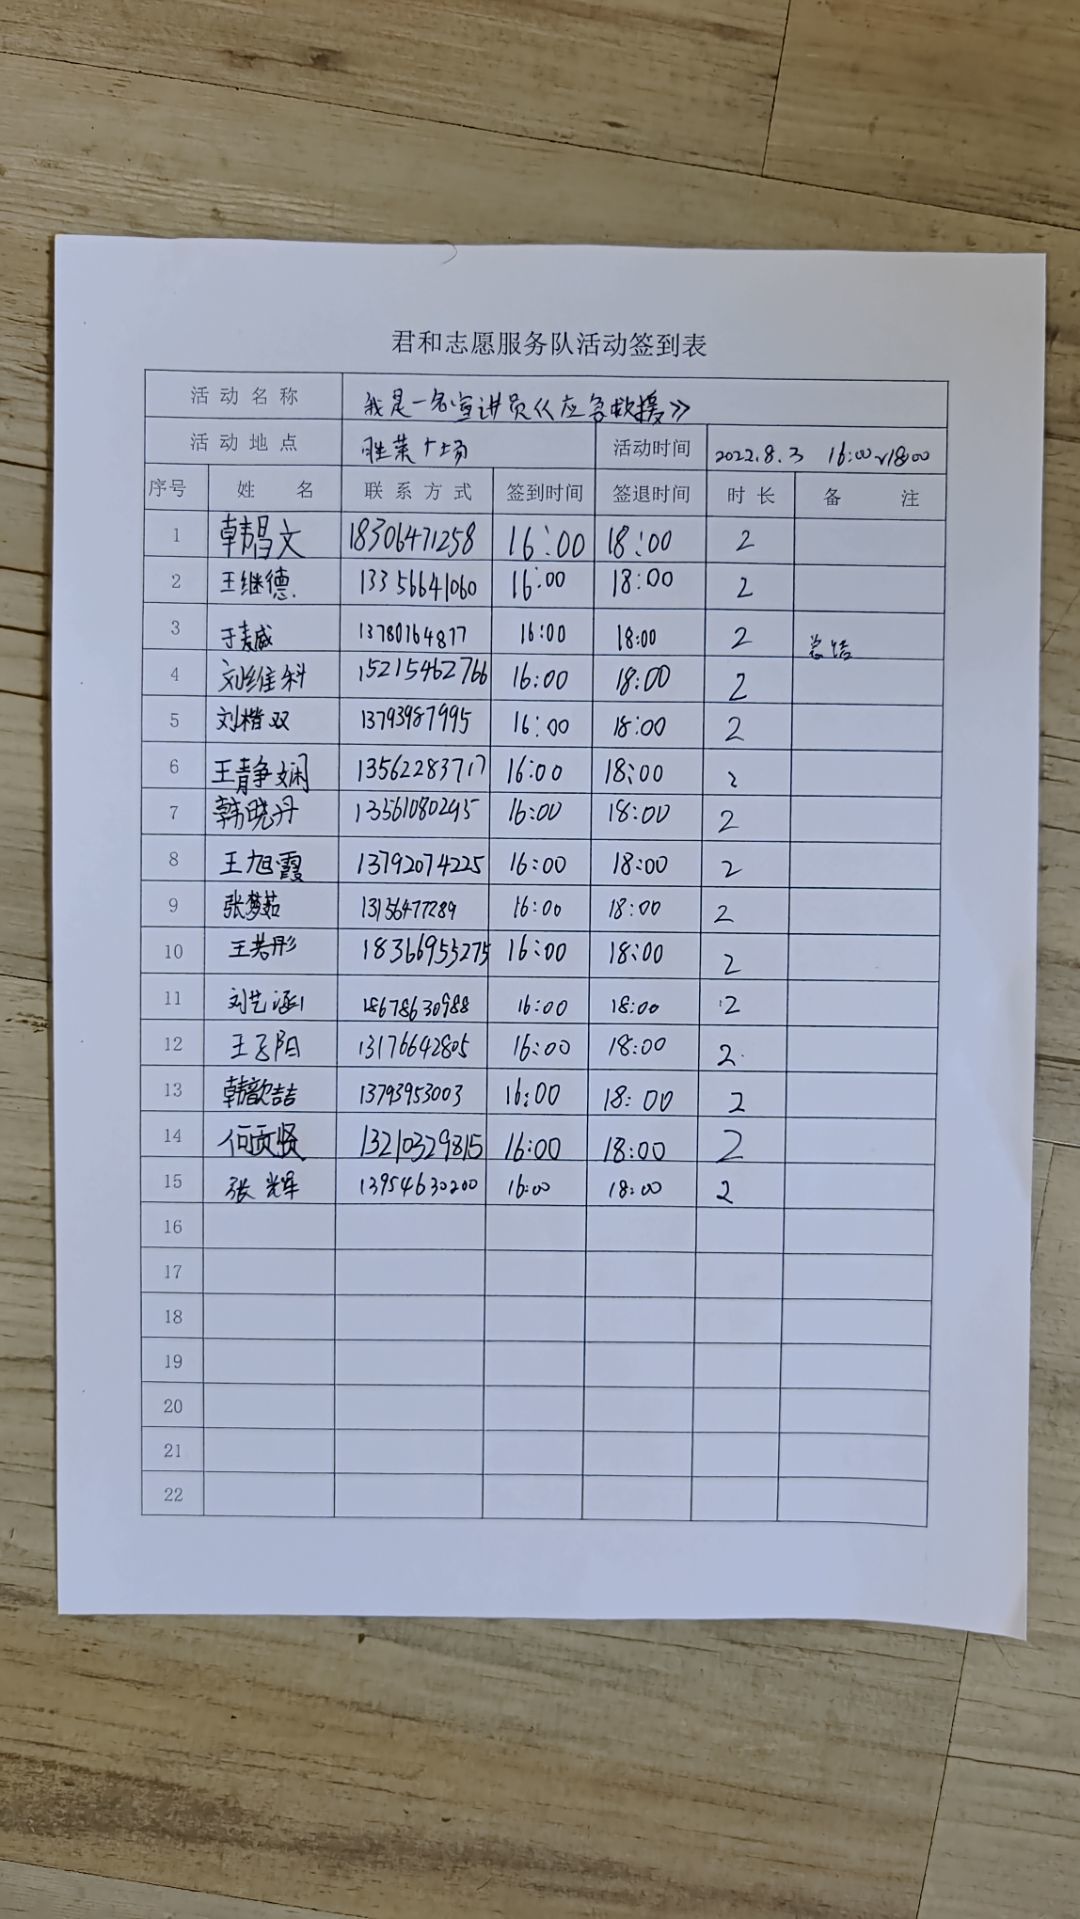 君和志愿服务队活动签到表
活动名称 我是一名宣讲员《应急救援》
活动地点 胜莱广场 活动时间 2022.8.3 16:00~18:00
序号 姓名 联系方式 签到时间 签退时间 时长 备注
1 韩昌文 18306471258 16:00 18:00 2
2 王继德 13356641060 16:00 18:00 2
3 于麦威 13780164877 16:00 18:00 2 总结
4 刘维科 15215462766 16:00 18:00 2
5 刘楷双 13793987995 16:00 18:00 2
6 王静娴 13562283717 16:00 18:00 2
7 韩晓丹 13561080295 16:00 18:00 2
8 王旭霞 13792074225 16:00 18:00 2
9 张梦茹 13156477289 16:00 18:00 2
10 王若彤 18366953275 16:00 18:00 2
11 刘艺涵 18678630988 16:00 18:00 2
12 王飞阳 13176642805 16:00 18:00 2
13 韩歆喆 13793953003 16:00 18:00 2
14 何贡贤 13210329815 16:00 18:00 2
15 张辉 13954630200 16:00 18:00 2
16
17
18
19
20
21
22